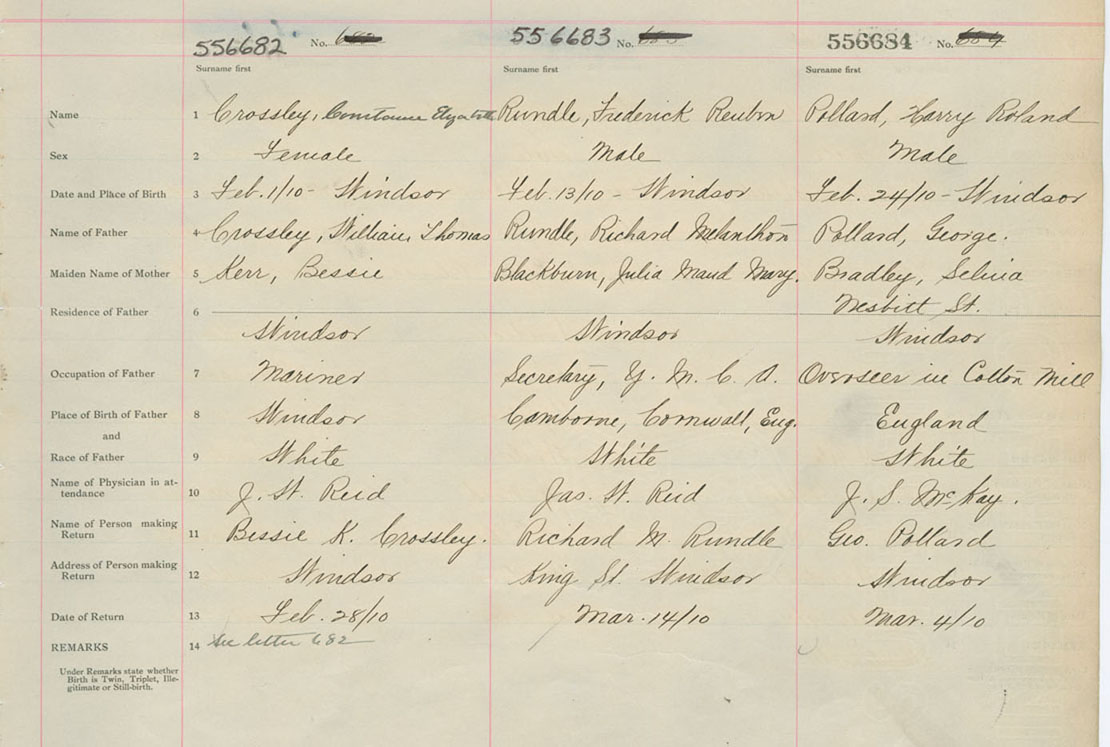 556682 No. 556683 No. 556684 No.
Surname first Surname first Surname first
Name 1 Crossley, Constance Elizabeth Rundle, Frederick Reuben Pollard, Harry Roland
Sex 2 Female Male Male
Date and Place of Birth 3 Feb. 1/10 - Windsor Feb. 13/10 - Windsor Feb. 24/10 - Windsor
Name of Father 4 Crossley, William Thomas Rundle, Richard Melanthon Pollard, George.
Maiden Name of Mother 5 Kerr, Bessie Blackburn, Julia Maud Mary. Bradley, Selina
Residence of Father 6 Nesbitt St.
Windsor Windsor Windsor
Occupation of Father 7 Mariner Secretary, Y. M. C. A. Overseer in Cotton Mill
Place of Birth of Father 8 Windsor Camborne, Cornwall, Eng. England
and
Race of Father 9 White White White
Name of Physician in at-
tendance 10 J. W. Reid Jas. W. Reid J. S. McKay.
Name of Person making
Return 11 Bessie K. Crossley. Richard M. Rundle Geo. Pollard
Address of Person making
Return 12 Windsor King St. Windsor Windsor
Date of Return 13 Feb. 28/10 Mar. 14/10 Mar. 4/10
REMARKS 14 See letter 682
Under Remarks state whether
Birth is Twin, Triplet, Ille-
gitimate or Still-birth.